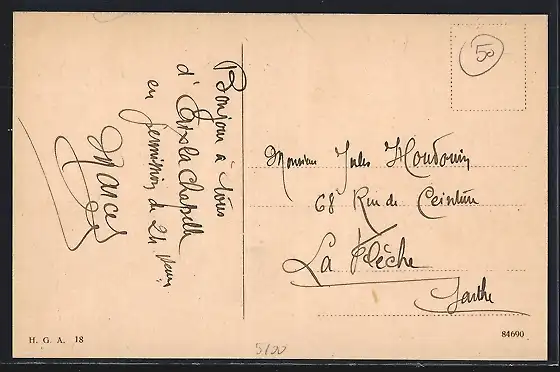 Bonjour à tous
d'Aix la Chapelle
en permission de 24 heures
Marcel
50
Monsieur Jules Houdouin
68 Rue de Ceinture
La Flèche
Sarthe
H. G. A. 18
84690
5/00